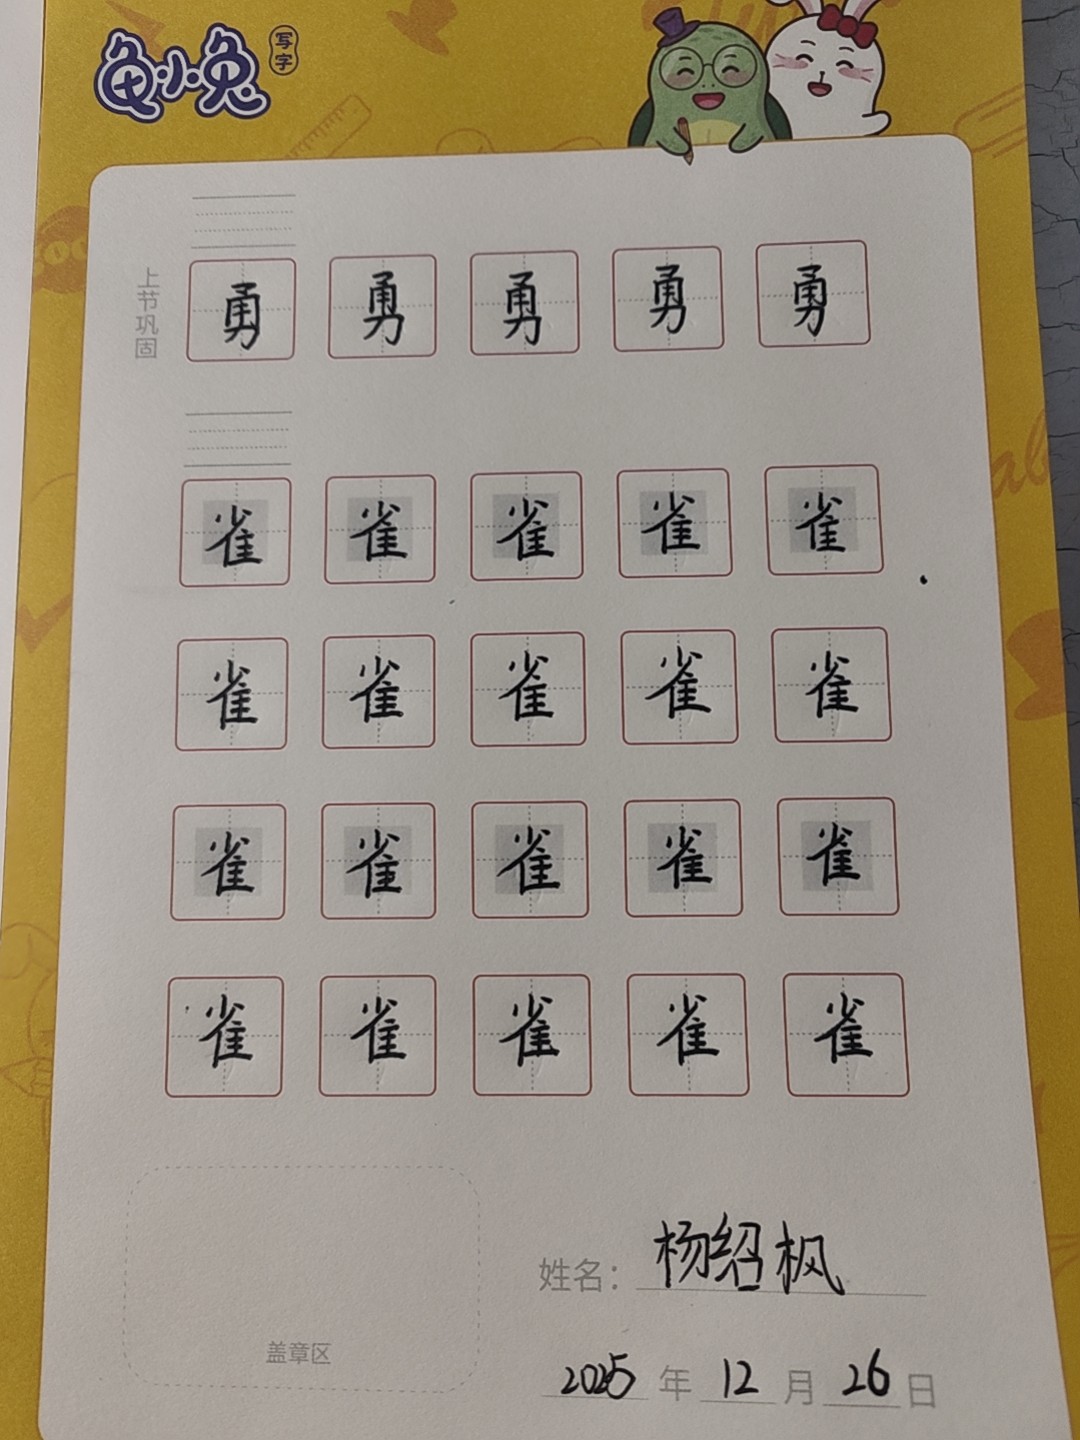 龟小兔 写字
上节巩固
勇 勇 勇 勇 勇
雀 雀 雀 雀 雀
雀 雀 雀 雀 雀
雀 雀 雀 雀 雀
雀 雀 雀 雀 雀
姓名：杨绍枫
盖章区
2025 年 12 月 26 日